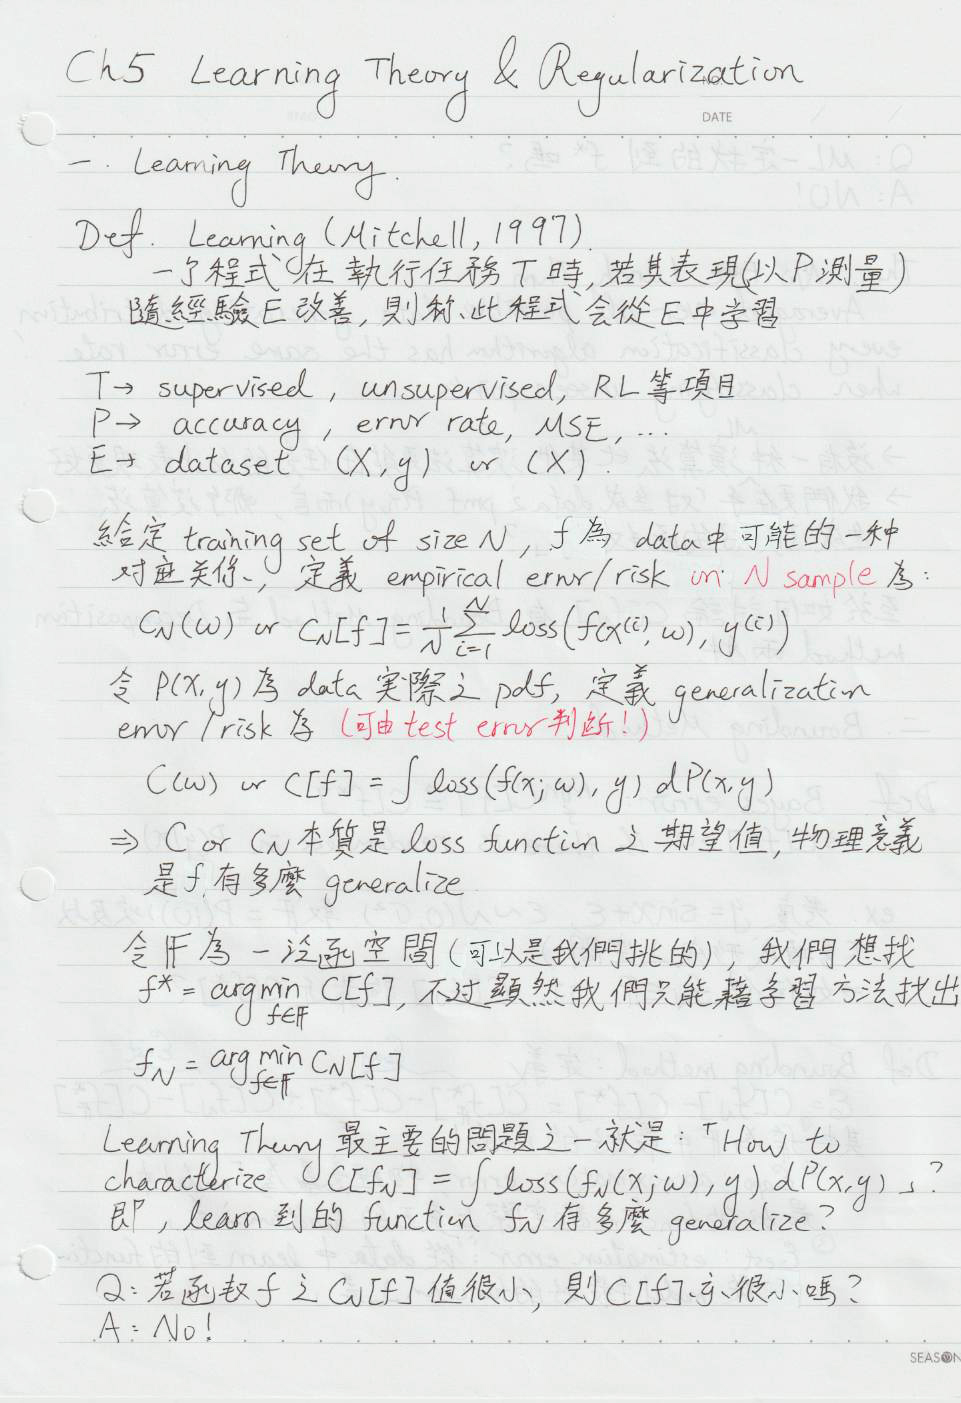 Ch5 Learning Theory & Regularization
NO.
DATE
一. Learning Theory.
Def. Learning (Mitchell, 1997).
一个程式在執行任務T時, 若其表現(以P測量)
隨經驗E改善, 則称此程式会從E中学習
T→ supervised, unsupervised, RL等項目
P→ accuracy, error rate, MSE, ...
E→ dataset (X,y) or (X).
給定 training set of size N, f為 data中可能的一种
对应关係, 定義 empirical error/risk in N sample 為:
C_N(ω) or C_N[f] = 1/N Σ_{i=1}^{N} loss(f(x^{(i)}, ω), y^{(i)})
令 P(x,y) 為 data 実際之 pdf, 定義 generalization
error/risk 為 (可由test error判断!)
C(ω) or C[f] = ∫ loss(f(x;ω), y) dP(x,y)
⇒ C or C_N 本質是 loss function 之期望值, 物理意義
是f有多麼 generalize
令 𝔽 為一泛函空間(可以是我們挑的), 我們想找
f* = argmin_{f∈𝔽} C[f], 不过顯然我們只能藉学習方法找出
f_N = argmin_{f∈𝔽} C_N[f]
Learning Theory 最主要的問題之一就是:「How to
characterize C[f_N] = ∫ loss(f_N(x;ω), y) dP(x,y)」?
即, learn到的 function f_N 有多麼 generalize?
Q: 若函数f之C_N[f]值很小, 則C[f]亦很小嗎?
A: No!
SEASON